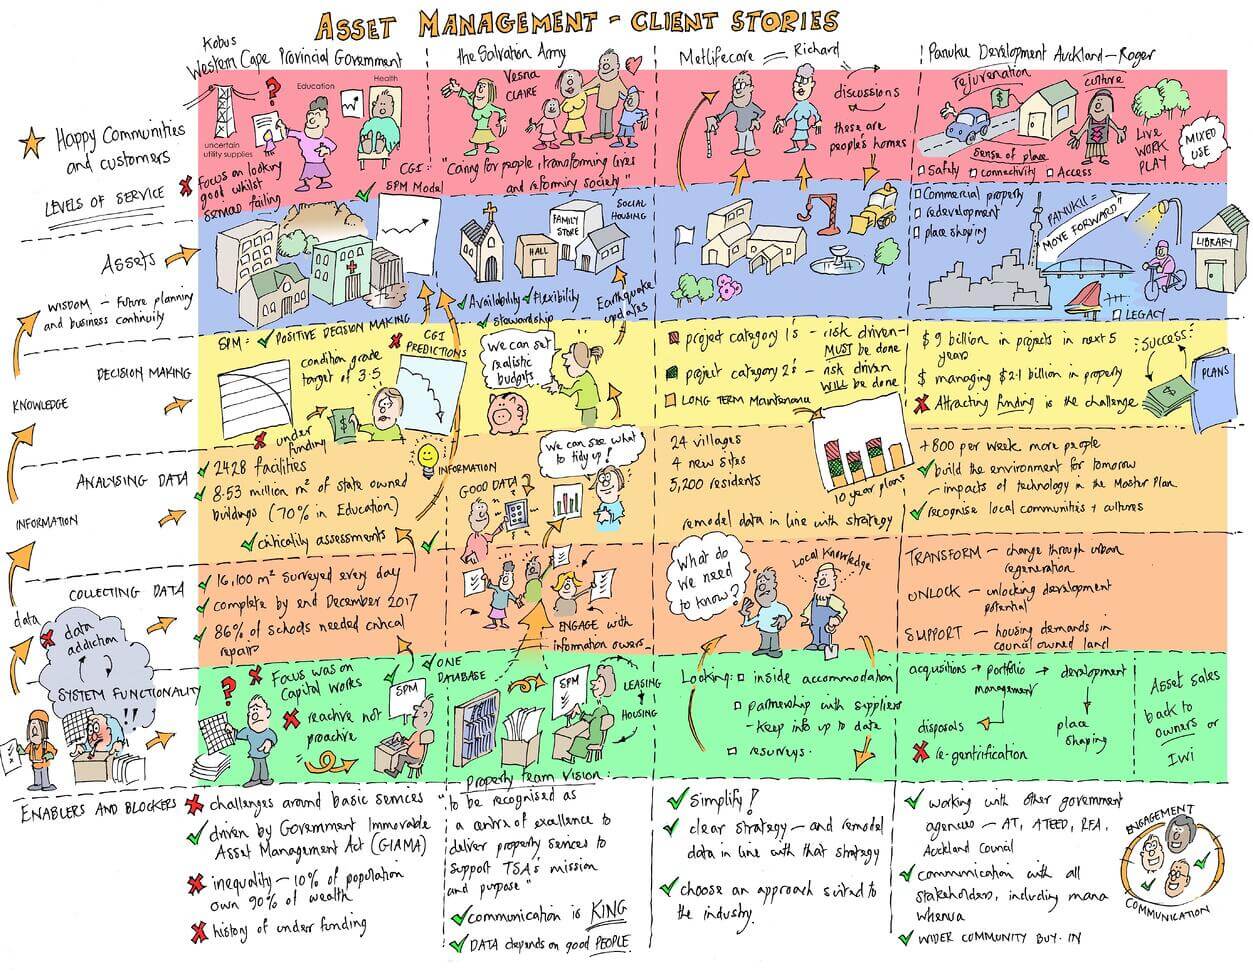 ASSET MANAGEMENT - CLIENT STORIES
Kobus
Western Cape Provincial Government
the Salvation Army
Metlifecare - Richard
Panuku Development Auckland - Roger
Happy Communities
and customers
LEVELS OF SERVICE
Education
Health
?
uncertain
utility supplies
Focus on looking
good whilst
services failing
CGI:
SPM Model
Vesna
CLAIRE
"Caring for people, transforming lives
and reforming society"
discussions
these are
people's homes!
rejuvenation
$
culture
Sense of place
Safety
connectivity
Access
LIVE
WORK
PLAY
MIXED
USE
Assets
WISDOM - Future planning
and business continuity
FAMILY
STORE
HALL
SOCIAL
HOUSING
Availability
Flexibility
Stewardship
Earthquake
updates
Commercial property
redevelopment
place shaping
PANUKU =
MOVE FORWARD"
LIBRARY
LEGACY
DECISION MAKING
KNOWLEDGE
SPM:
POSITIVE DECISION MAKING
CGI
PREDICTIONS
condition grade
target of 3.5
under
funding
$
We can set
realistic
budgets
project category 1's - risk driven -
MUST be done
project category 2's - risk driven
WILL be done
LONG TERM Maintenance
$9 billion in projects in next 5
years
$ managing $2.1 billion in property
Attracting funding is the challenge
Success?
$
PLANS
ANALYSING DATA
INFORMATION
2428 facilities
8.53 million m² of state owned
buildings (70% in Education)
criticality assessments
INFORMATION
GOOD DATA?
We can see what
to tidy up!
24 villages
4 new sites
5,200 residents
10 year plans
remodel data in line with strategy
+800 per week more people
build the environment for tomorrow
- impacts of technology in the Master Plan
recognise local communities + cultures
COLLECTING DATA
data
data
addiction
16,100 m² surveyed every day
complete by end December 2017
86% of schools needed critical
repairs
ENGAGE with
information owners
What do
we need
to know?
Local Knowledge
TRANSFORM - change through urban
regeneration
UNLOCK - unlocking development
potential
SUPPORT - housing demands in
council owned land
SYSTEM FUNCTIONALITY
!!
?
Focus was on
Capital Works
reactive not
proactive
SPM
ONE
DATABASE
SPM
LEASING
HOUSING
Looking:
inside accommodation
partnership with suppliers
- Keep info up to date
resurveys.
acquisitions → portfolio
management
development
disposals
place
shaping
re-gentrification
Asset sales
back to
owners or
IWI
ENABLERS AND BLOCKERS
challenges around basic services
driven by Government Immovable
Asset Management Act (GIAMA)
inequality - 10% of population
own 90% of wealth
history of under funding
property team vision:
"to be recognised as
a centre of excellence to
deliver property services to
support TSA's mission
and purpose"
communication is KING
DATA depends on good PEOPLE
Simplify!
clear strategy - and remodel
data in line with that strategy
choose an approach suited to
the industry.
working with other government
agencies - AT, ATEED, RFA,
Auckland Council
communication with all
stakeholders, including mana
whenua
WIDER COMMUNITY BUY-IN
ENGAGEMENT
COMMUNICATION